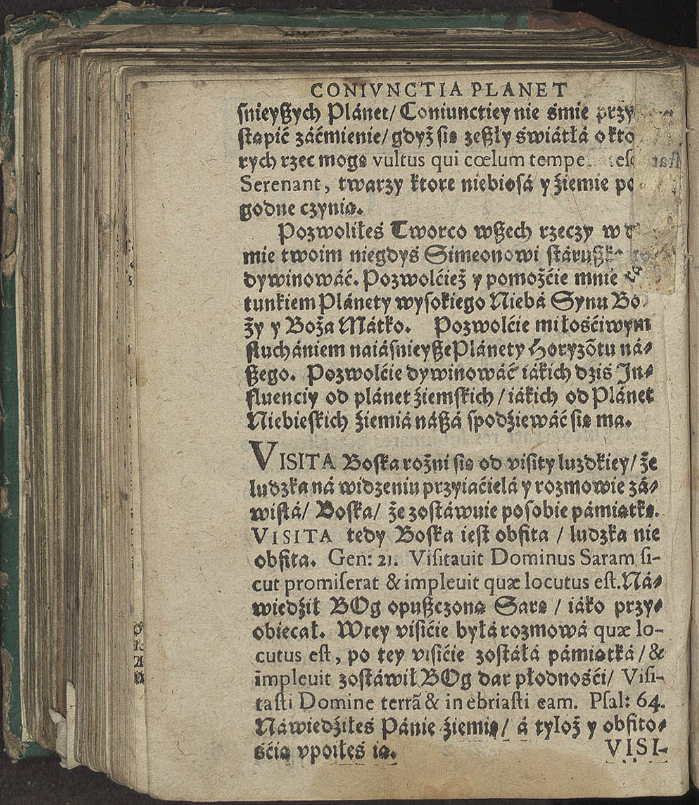 CONIVNCTIA PLANET
śnieyßych Plánet/ Coniunctiey nie śmie przy
stąpić záćmienie/ gdyż się zeßły świátłá o kto
rych rzec mogę vultus qui cœlum
Serenant, twarzy ktore niebiosá y źiemie po
godne czynią.
Pozwoliłeś Tworco wßech rzeczy w
mie twoim niegdyś Simeonowi stárußko
dywinowáć. Pozwolćież y pomożćie mnie
tunkiem Plánety wysokiego Niebá Synu Bo
ży y Boża Mátko. Pozwolćie miłośćiwym
słuchániem naiáśnieyße Plánety Horyzõtu ná⸗
ßego. Pozwolćie dywinowáć iákich dziś In⸗
fluenciy od plánet źiemskich/ iákich od Plánet
Niebieskich źiemiá náßá spodźiewáć się ma.
VISITA Boska rożni się od visity luzdkiey/ że
ludzka ná widzeniu przyiaćielá y rozmowie zá⸗
wisłá/ Boska/ że zostáwuie po sobie pámiątkę.
VISITA tedy Boska iest obfita / ludzka nie
obfita. Gen: 21. Visitauit Dominus Saram si-
cut promiserat & impleuit quæ locutus est. Ná⸗
wiedźił BOg opußczoną Sarę / iáko przy⸗
obiecał. W tey visićie byłá rozmowá quæ lo-
cutus est, po tey visićie zostáłá pámiątká/ &
impleuit zostáwił BOg dar płodnośći/ Visi-
tasti Domine terrã & inebriasti eam. Psal: 64.
Náwiedźiłeś Pánie źiemię/ á tyloż y obfito⸗
śćią vpoiłeś ią. VISI-